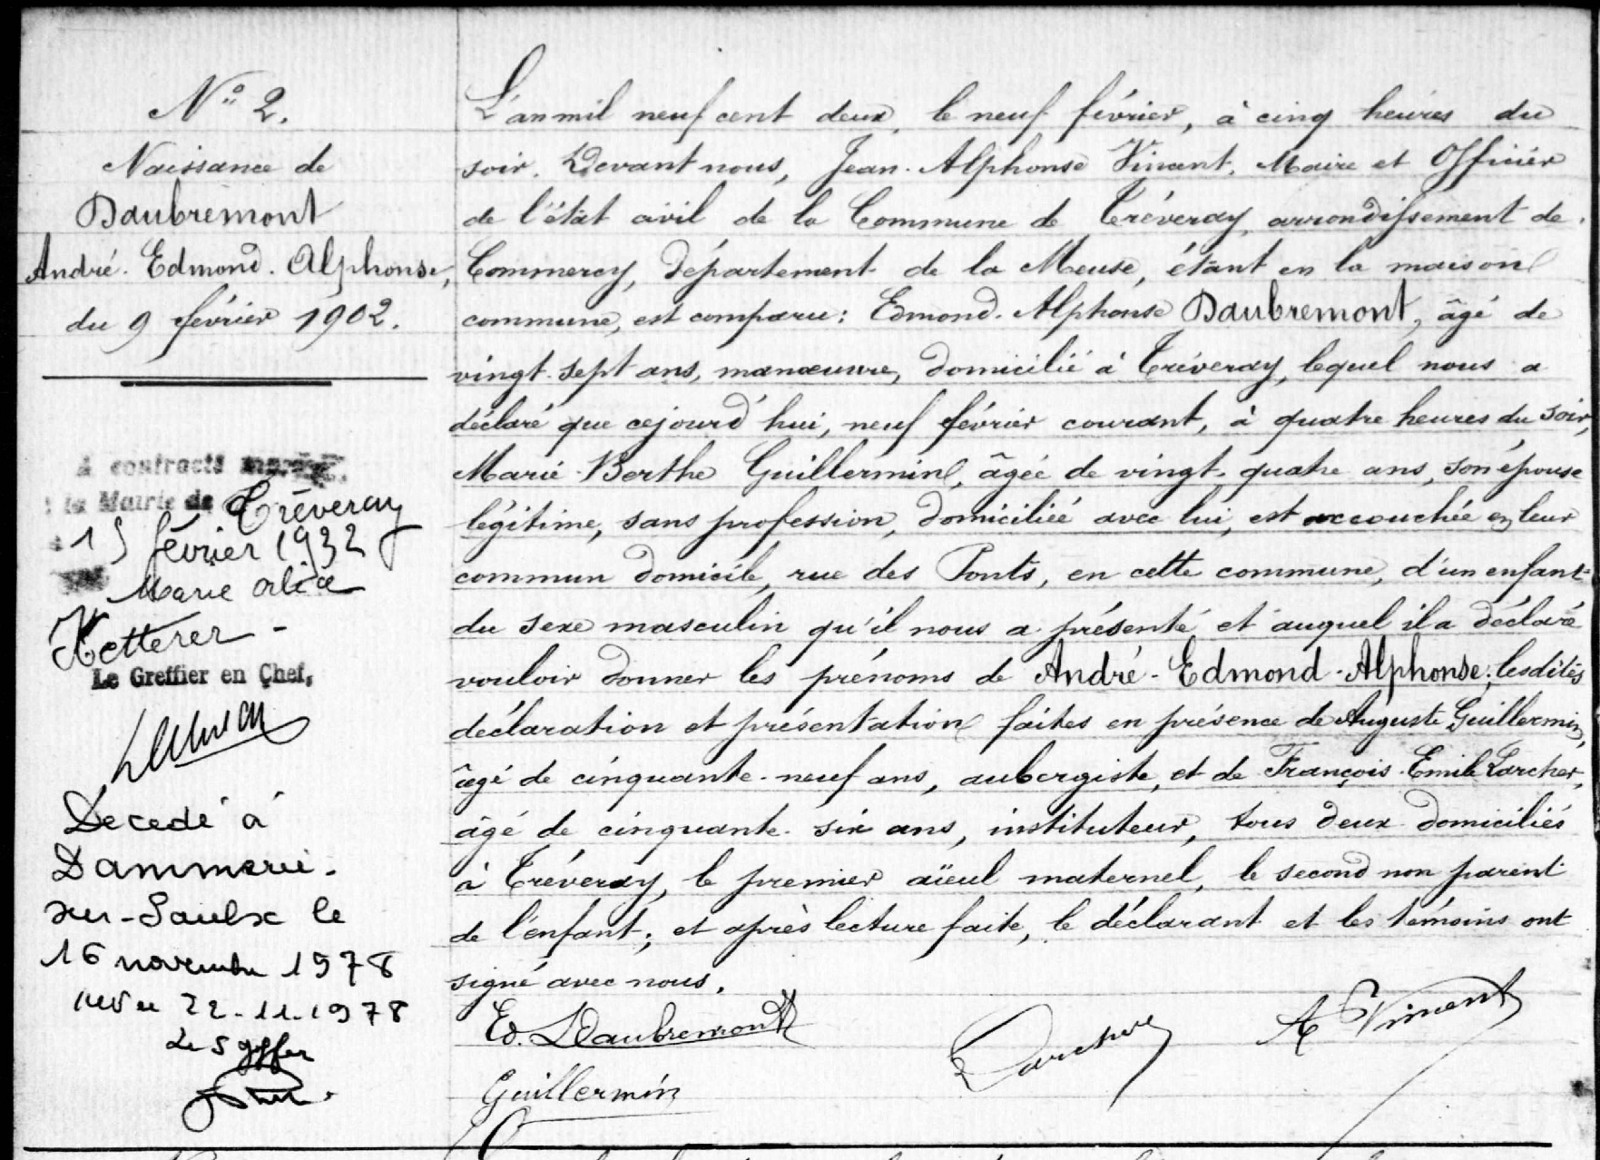 N° 2.
Naissance de
Daubremont
André. Edmond. Alphonse,
du 9 février 1902.
A contracté mariage
à la Mairie de Tréveray
15 février 1932
Marie Alice
Ketterer -
Le Greffier en Chef,
Décédé à
Dammarie-
sur-Saulx le
16 novembre 1978
22-11-1978
L'an mil neuf cent deux, le neuf février, à cinq heures du
soir. Devant nous, Jean-Alphonse Vincent, Maire et Officier
de l'état civil de la Commune de Tréveray, arrondissement de
Commercy, département de la Meuse, étant en la maison
commune, est comparu: Edmond-Alphonse Daubremont, âgé de
vingt-sept ans, manœuvre, domicilié à Tréveray, lequel nous a
déclaré que cejourd'hui, neuf février courant, à quatre heures du soir,
Marie-Berthe Guillermin, âgée de vingt-quatre ans, son épouse
légitime, sans profession, domiciliée avec lui, est accouchée en leur
commun domicile, rue des Ponts, en cette commune, d'un enfant
du sexe masculin qu'il nous a présenté et auquel il a déclaré
vouloir donner les prénoms de André-Edmond-Alphonse; lesdites
déclaration et présentation faites en présence de Auguste Guillermin,
âgé de cinquante-neuf ans, aubergiste, et de François-Emile Larcher,
âgé de cinquante-six ans, instituteur, tous deux domiciliés
à Tréveray, le premier aïeul maternel, le second non parent
de l'enfant; et après lecture faite, le déclarant et les témoins ont
signé avec nous.
Ed. Daubremont
Larcher
A Vincent
Guillermin